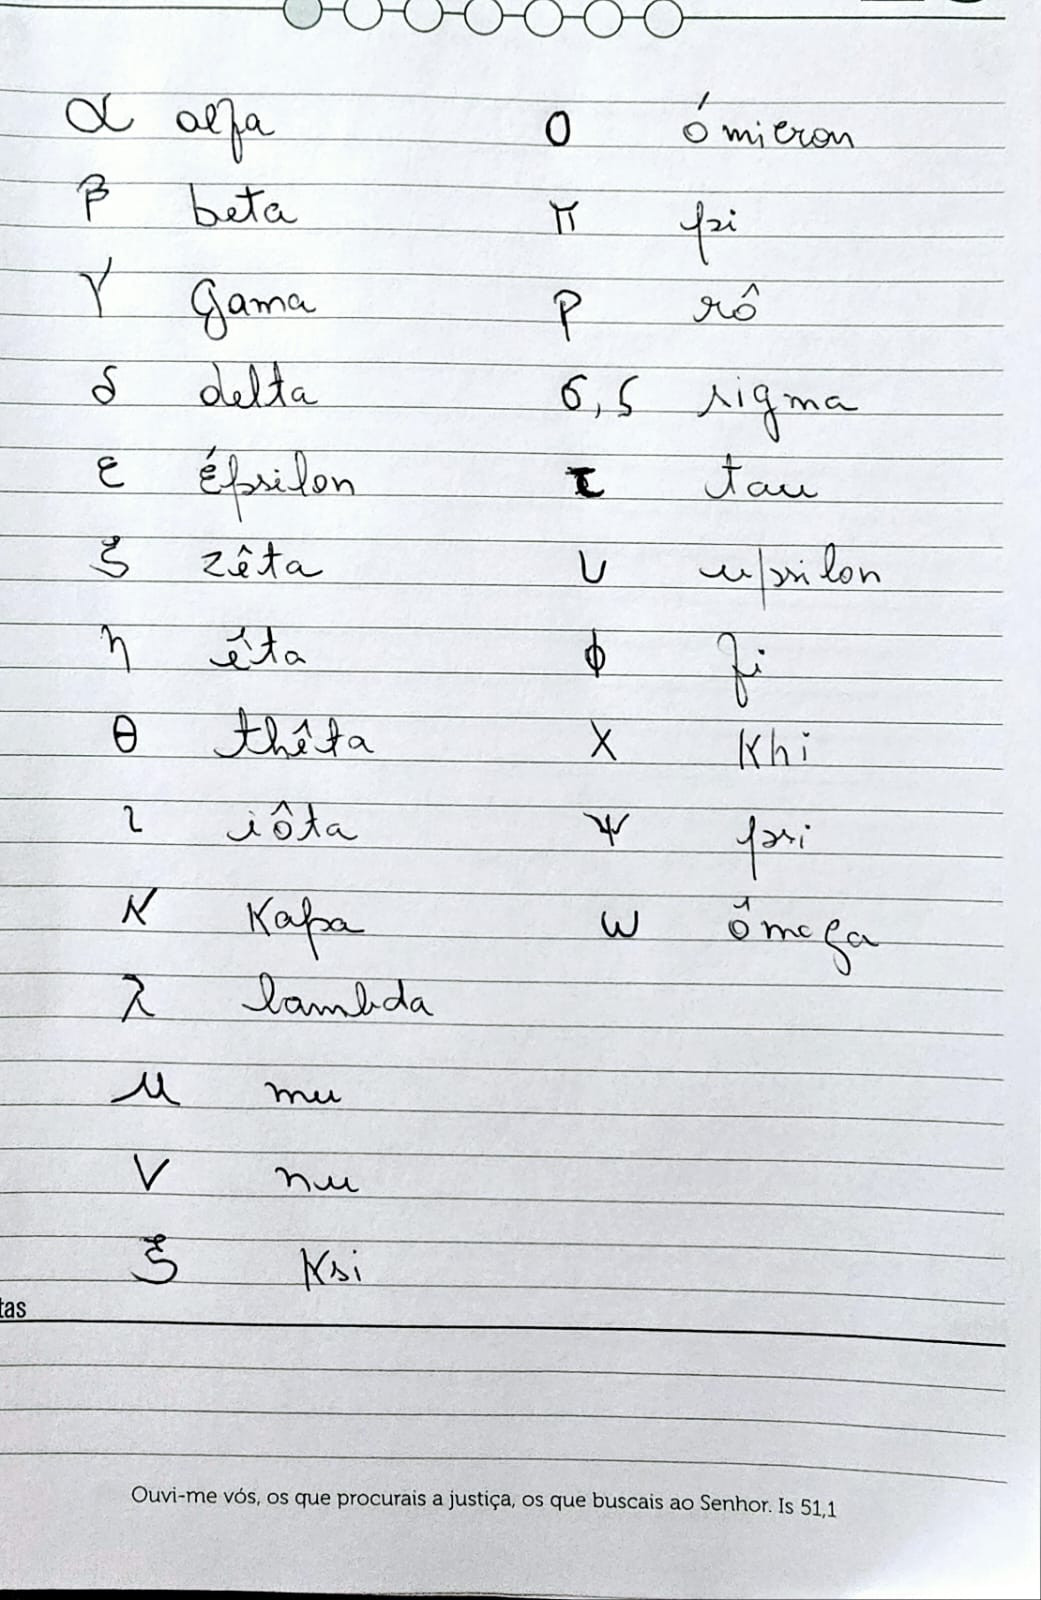 α alfa
β beta
γ gama
δ delta
ε épsilon
ζ zêta
η êta
θ thêta
ι iôta
κ Kapa
λ lambda
μ mu
ν nu
ξ Ksi
ο ómicron
π pi
ρ rô
σ, ς sigma
τ tau
υ upsilon
φ fi
χ Khi
ψ psi
ω ômega
tas
Ouvi-me vós, os que procurais a justiça, os que buscais ao Senhor. Is 51,1